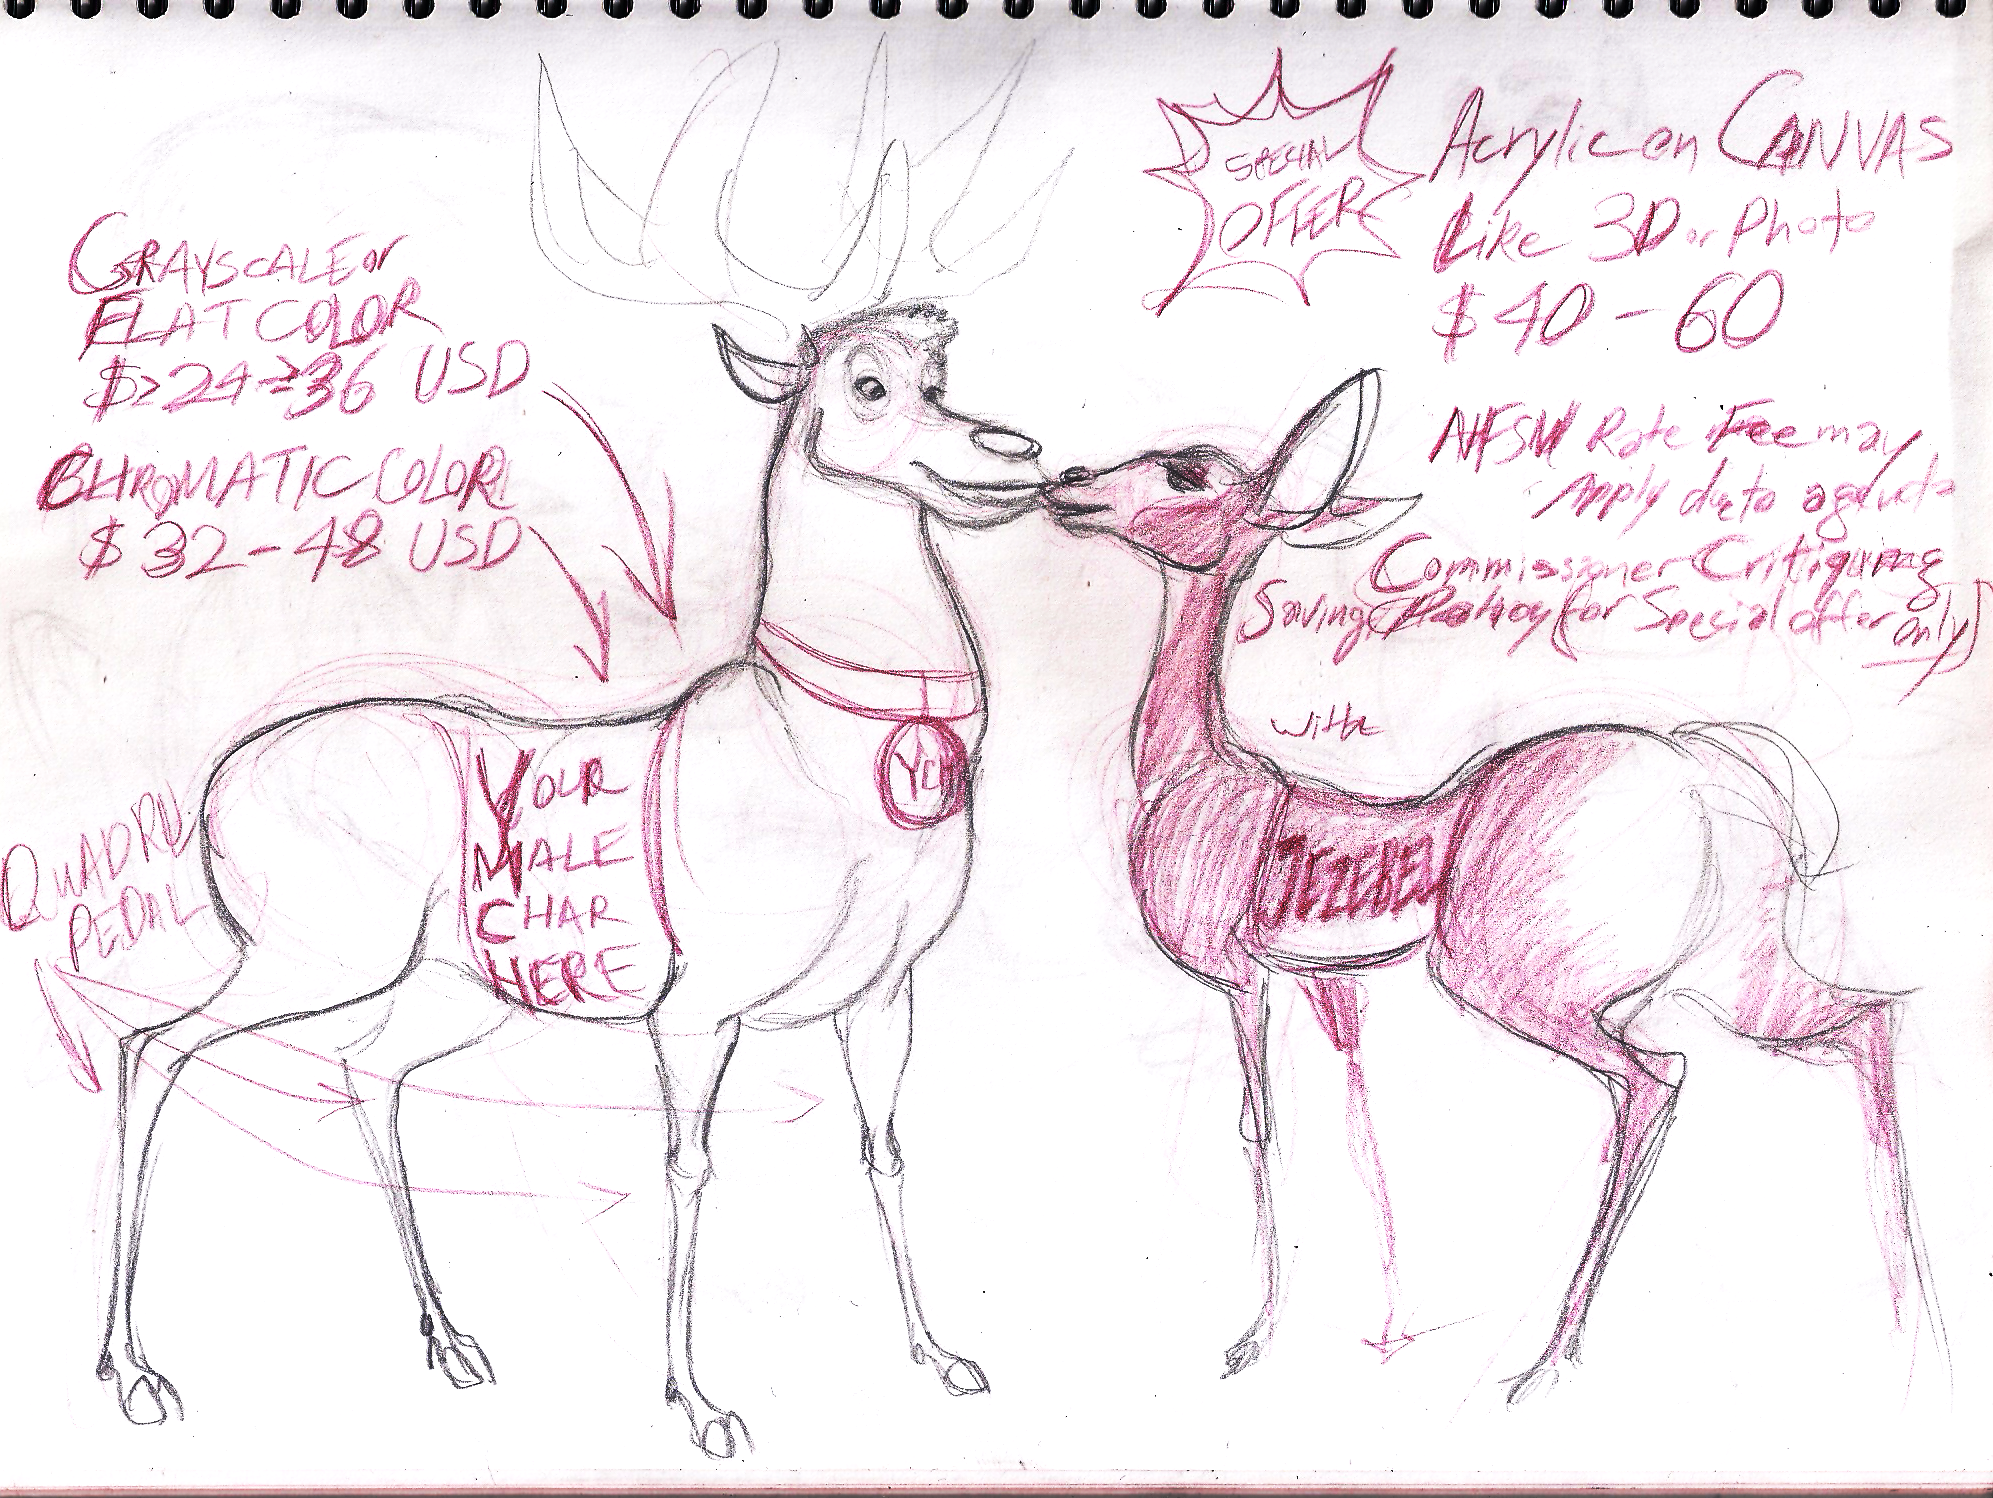 GRAYSCALE or
FLAT COLOR
$>24->36 USD
CHROMATIC COLOR
$32-48 USD
SPECIAL
OFFER
Acrylic on CANVAS
Like 3D or Photo
$40-60
Rate Fee may
Apply due to
Commissioner Critiquing
Saving (for Special offer
only)
QUADRU
PEDAL
YOUR
MALE
CHAR
HERE
YCH
with
JEZEBEL